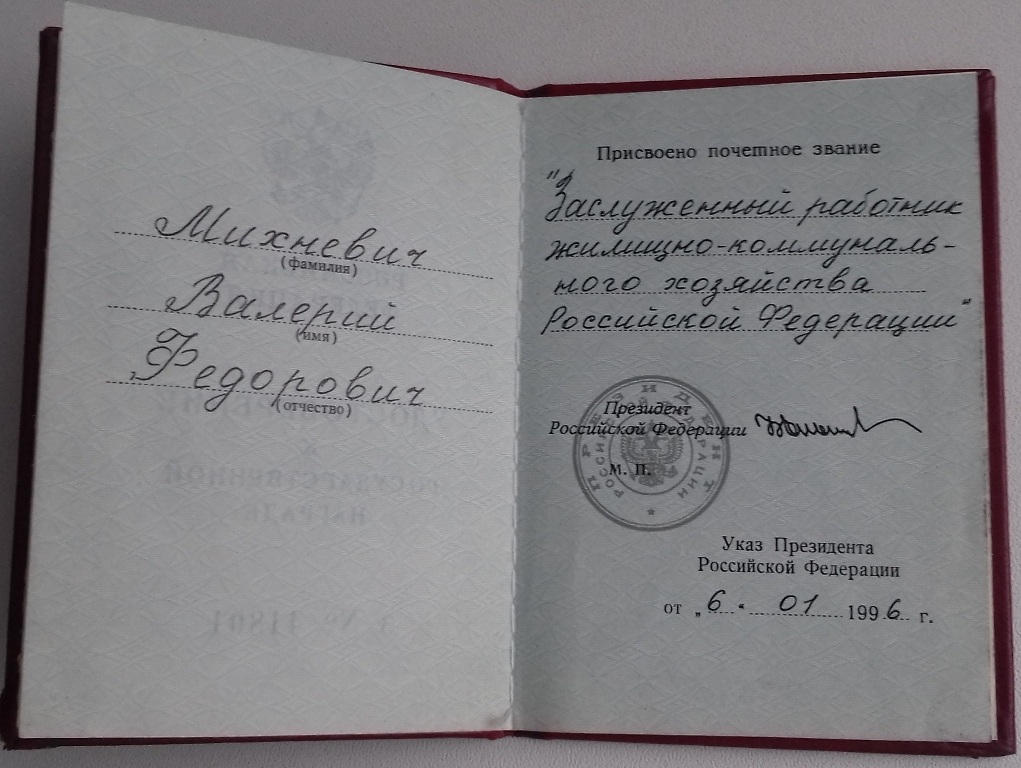 Михневич
(фамилия)
Валерий
(имя)
Федорович
(отчество)
Присвоено почетное звание
"Заслуженный работник
жилищно-коммуналь-
ного хозяйства
Российской Федерации"
Президент
Российской Федерации
М. П.
ПРЕЗИДЕНТ
РОССИЙСКОЙ ФЕДЕРАЦИИ
Указ Президента
Российской Федерации
от „6" 01 1996 г.